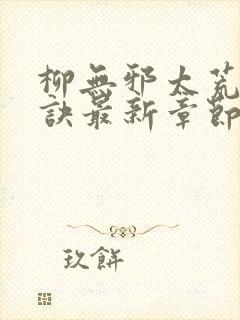 柳無邪太荒
訣最新章節
玖餅